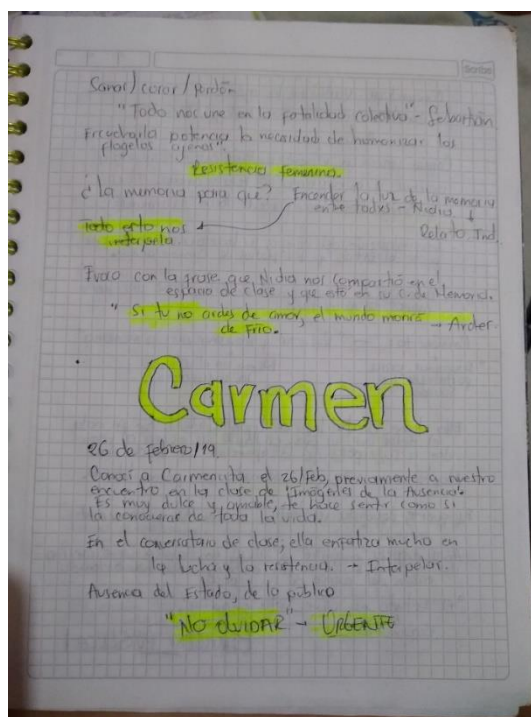 Sanar / curar / Perdón.
"Todo nos une en la fatalidad colectiva" - Sebastián.
Escucharla potencia la necesidad de humanizar los
flagelos ajenos".
Resistencia femenina.
¿La memoria para qué? Encender la luz de la memoria
entre todxs - Nidia ↓
Todo esto nos Relato Ind.
interpela.
con la frase que Nidia nos compartió en el
espacio de clase y que está en su C. de Memoria.
"Si tu no ardes de amor, el mundo morirá → Arder.
de Frio.
Carmen
26 de febrero/19
Conocí a Carmencita el 26/Feb, previamente a nuestro
encuentro en la clase de "Imágenes de la Ausencia".
Es muy dulce y amable, te hace sentir como si
la conocieras de toda la vida.
En el conversatorio de clase, ella enfatiza mucho en
la lucha y la resistencia. → Interpelar.
Ausencia del Estado, de lo público
"NO OLVIDAR" - URGENTE